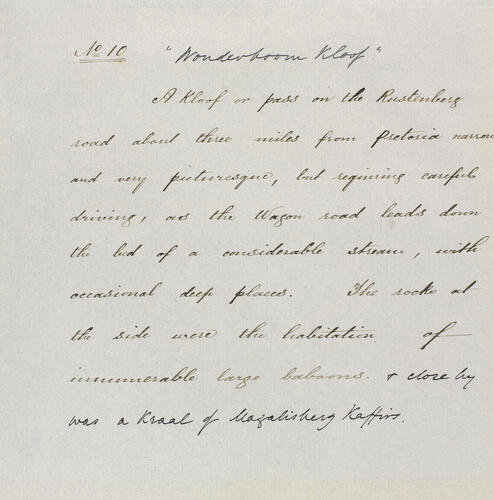 No 10 "Wonderboom Kloof"
A Kloof or pass on the Rustenberg
road about three miles from Pretoria narrow
and very picturesque, but requiring careful
driving, as the Wagon road leads down
the bed of a considerable stream, with
occasional deep places. The rocks at
the side were the habitation of
innumerable large baboons. & close by
was a Kraal of Magalisberg Kaffirs.